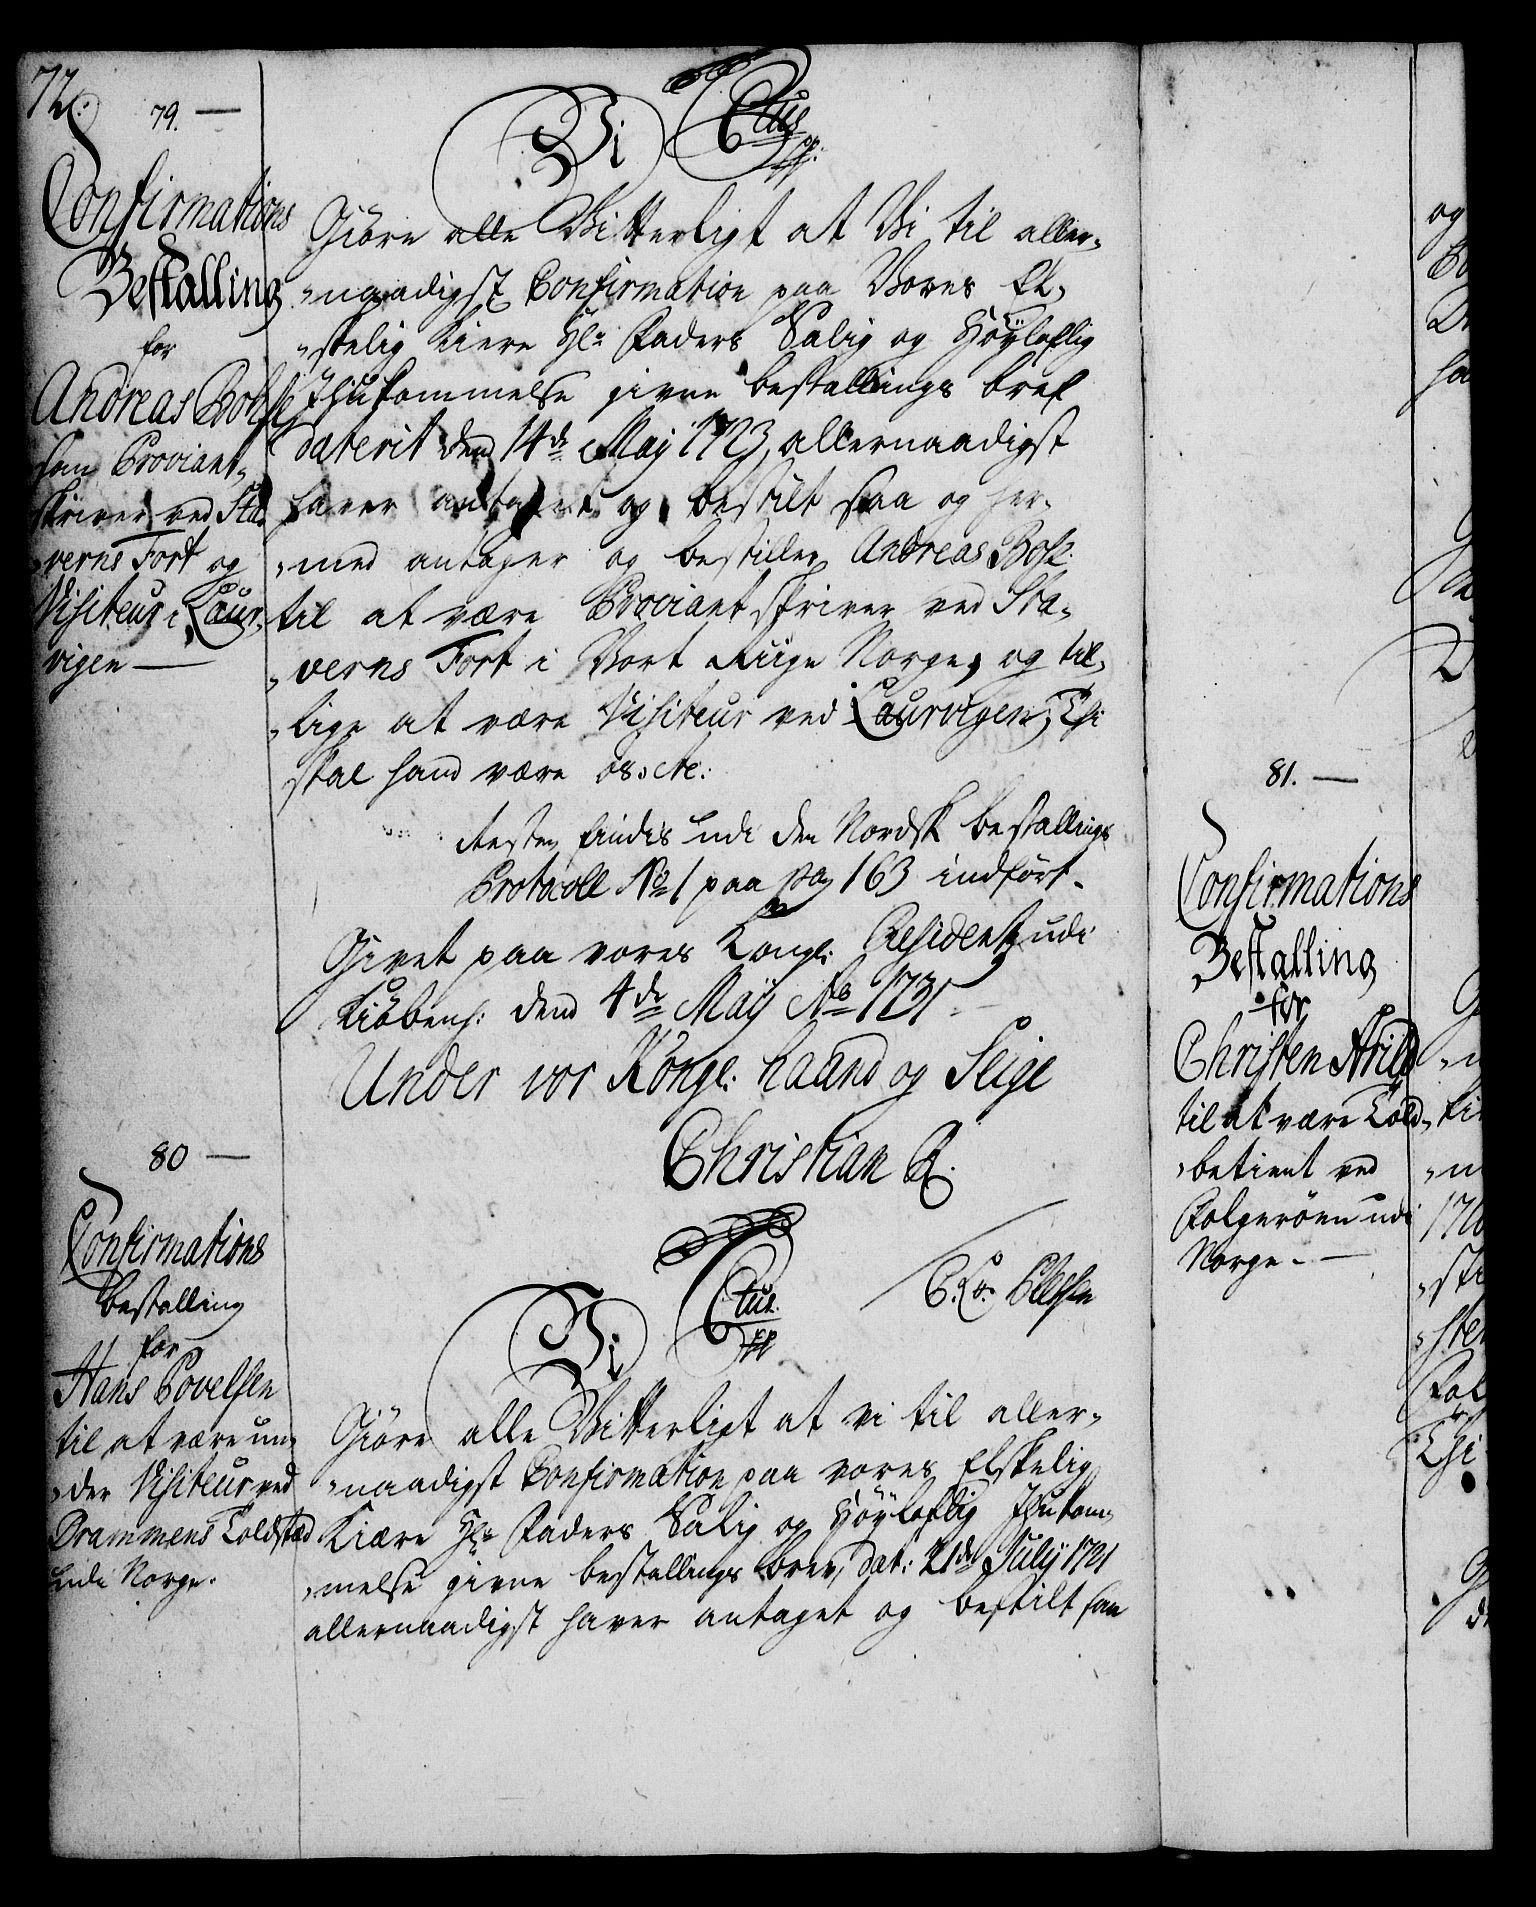 72.
79. —
Confirmations
Bestalling
for
Andreas Bohse
som Proviant-
skriver ved Sta-
verns Fort og
Visiteur i Laur-
vigen —
Vi Ctus
pp:
Giøre alle Vitterligt at Vi til aller-
naadigst Confirmation paa Vores El-
skelig Kiere Hr. Faders Salig og Høyloflig
Ihukommelse givne bestallings bref
daterit den 14de Maj 1723, allernaadigst
haver antaget og bestilt saa og her-
med antager og bestiller Andreas Bohse
til at være Proviantskriver ved Sta-
verns Fort i Vort Riige Norge, og til-
lige at være Visiteur ved Laurvigen; Thi
skal hand være os. etc:
Resten findis udi den Nordsk bestallings
Protocoll No 1 paa pag 163 indført.
Givet paa vores Kongl: Residentz udi
Kiøbenh: dend 4de Maij Ao 1731.
Under vor Kongl: haand og Seigl
Christian R.
80 —
Confirmations
bestalling
for
Hans Povelsen
til at være un-
der Visiteur ved
Drammens Toldsted
udi Norge.
Vi Ctus.
pp
Giøre alle Vitterligt at vi til aller-
naadigst Confirmation paa vores Elskelig
Kiære Hr. Faders Salig og Høyloflig Ihukom-
melse givne bestallings brev, dat: 21de Julij 1721
allernaadigst haver antaget og bestilt saa
81. —
Confirmations
Bestalling
for
Christen Arild
til at være Told-
betient ved
Folgerøen udi
Norge. —
og